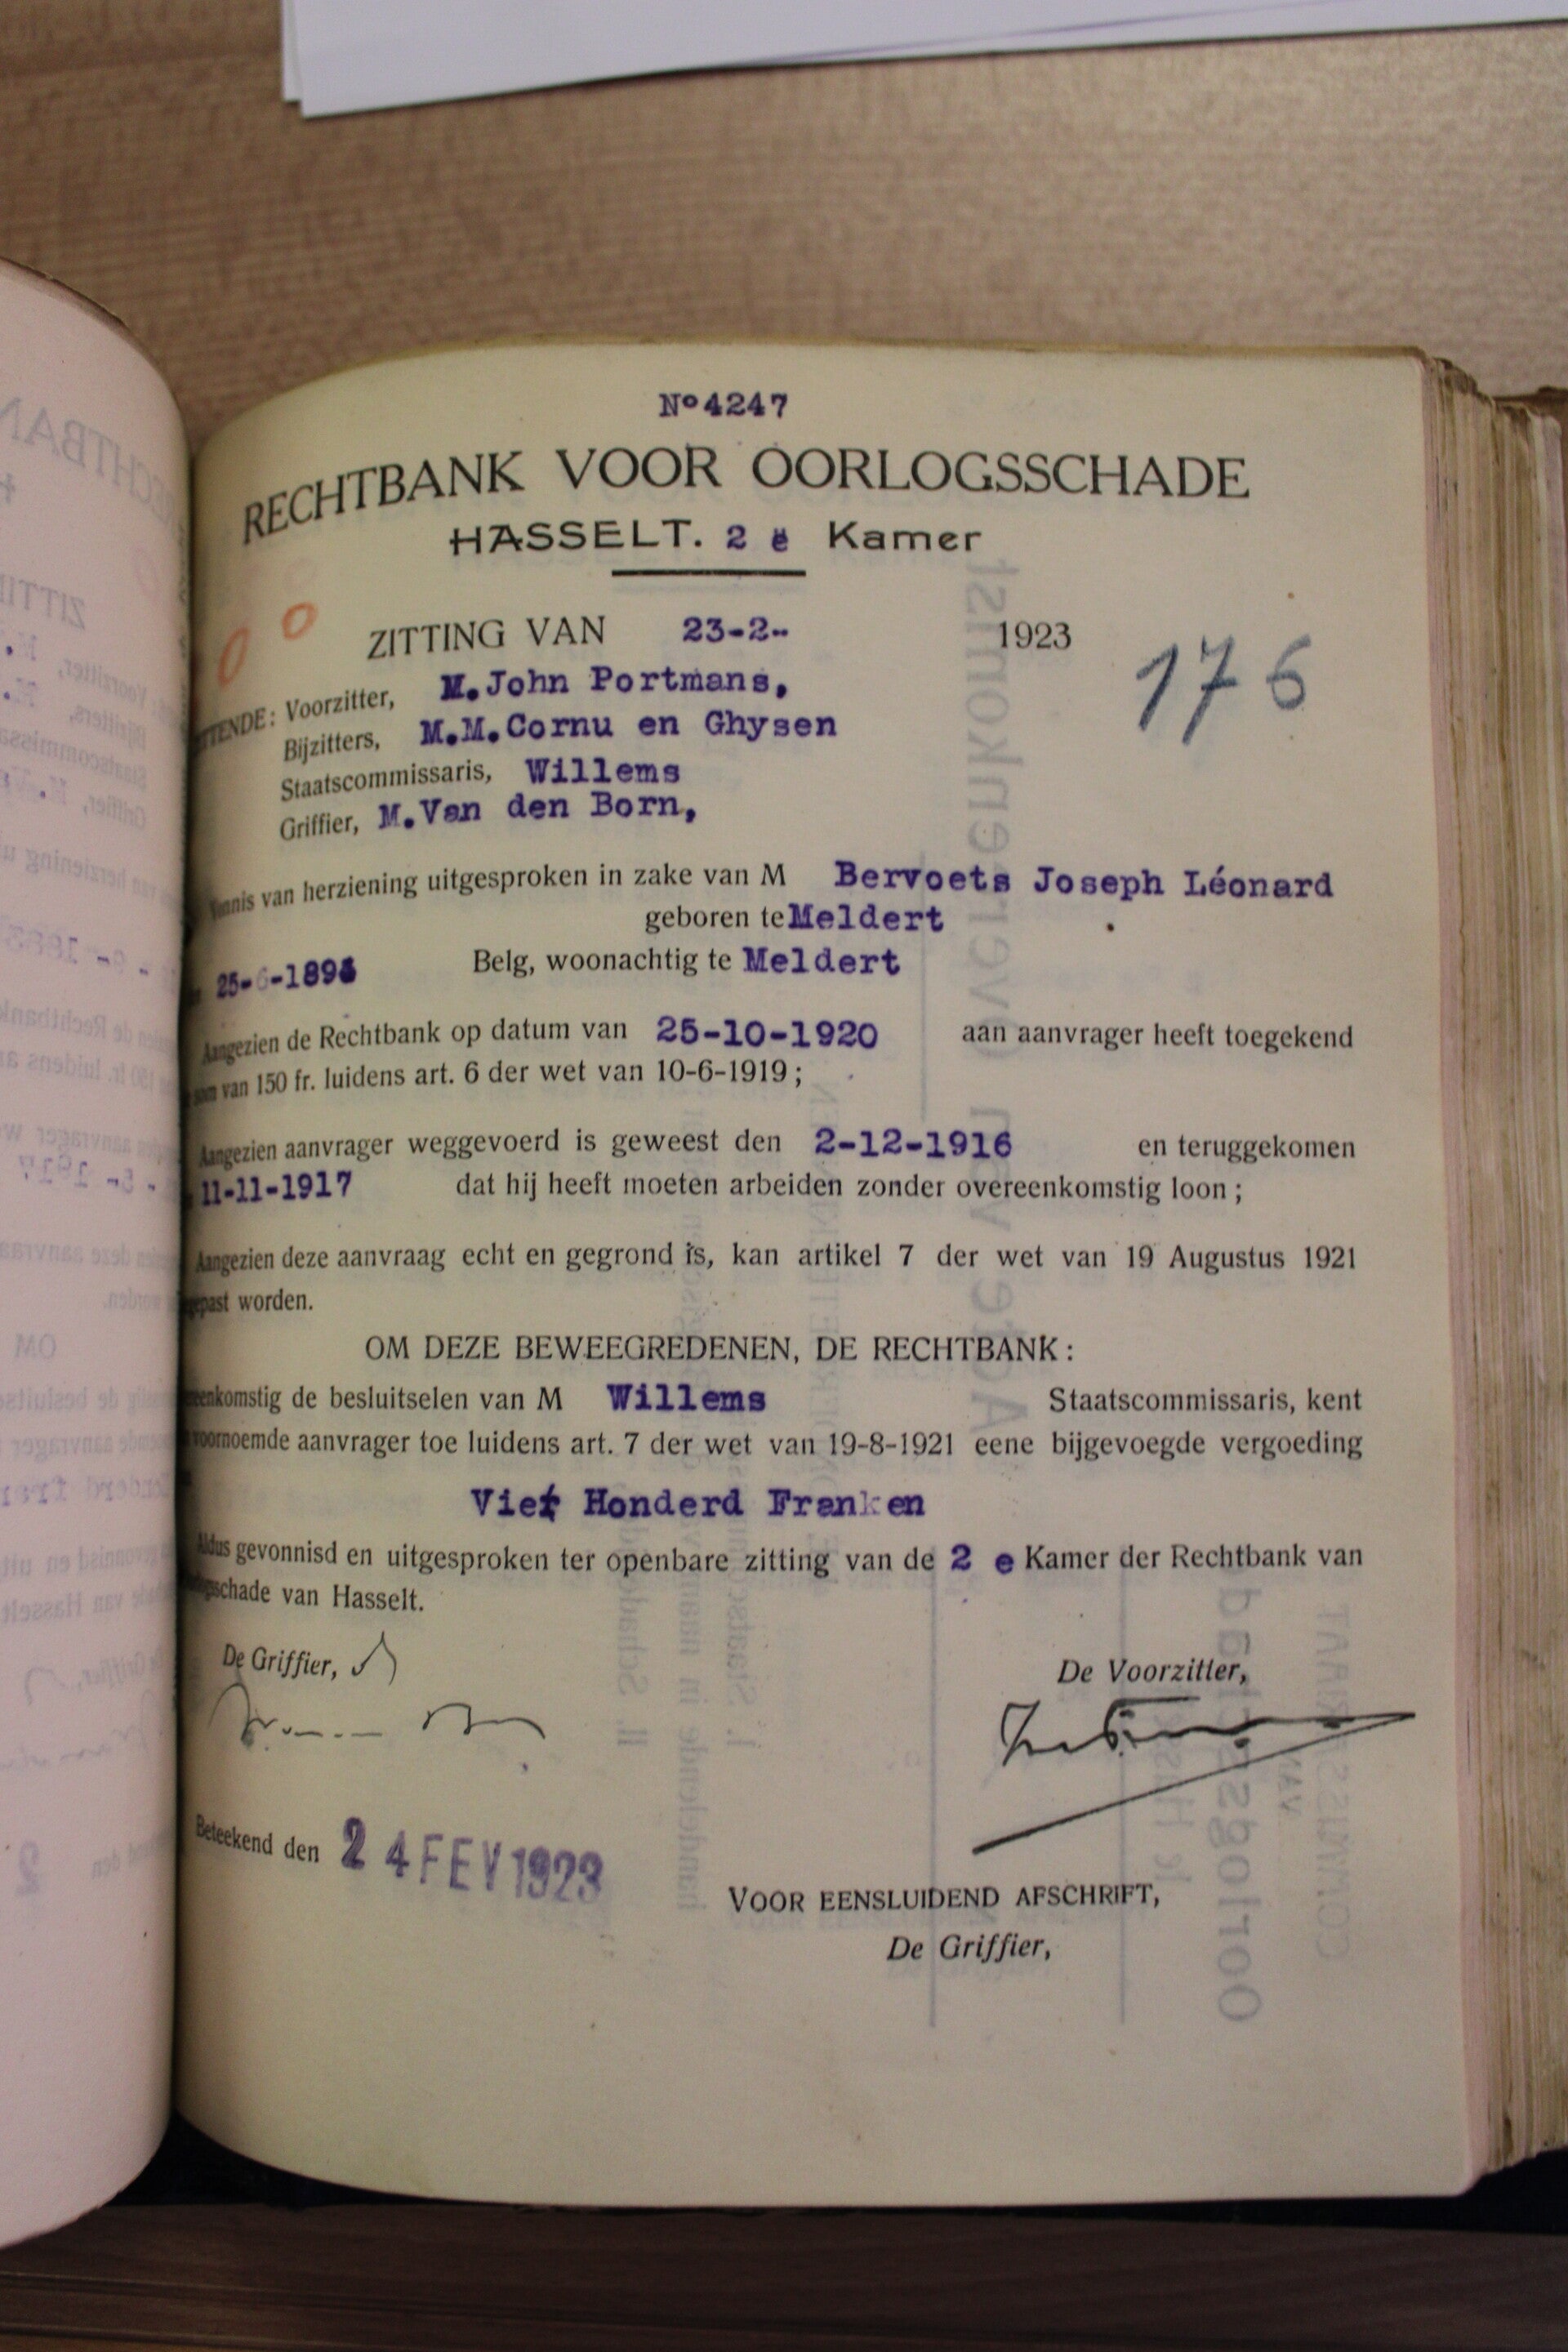 Nº 4247
RECHTBANK VOOR OORLOGSSCHADE
HASSELT. 2 e Kamer
ZITTING VAN 23-2- 1923
176
TENDE: Voorzitter, M. John Portmans,
Bijzitters, M.M. Cornu en Ghysen
Staatscommissaris, Willems
Griffier, M. Van den Born,
nnis van herziening uitgesproken in zake van M Bervoets Joseph Léonard
geboren te Meldert
25-6-189 Belg, woonachtig te Meldert
Aangezien de Rechtbank op datum van 25-10-1920 aan aanvrager heeft toegekend
som van 150 fr. luidens art. 6 der wet van 10-6-1919 ;
Aangezien aanvrager weggevoerd is geweest den 2-12-1916 en teruggekomen
11-11-1917 dat hij heeft moeten arbeiden zonder overeenkomstig loon ;
Aangezien deze aanvraag echt en gegrond is, kan artikel 7 der wet van 19 Augustus 1921
past worden.
OM DEZE BEWEEGREDENEN, DE RECHTBANK :
eenkomstig de besluitselen van M Willems Staatscommissaris, kent
voornoemde aanvrager toe luidens art. 7 der wet van 19-8-1921 eene bijgevoegde vergoeding
Vier Honderd Franken
Aldus gevonnisd en uitgesproken ter openbare zitting van de 2 e Kamer der Rechtbank van
schade van Hasselt.
De Griffier,
De Voorzitter,
Beteekend den 24 FEV 1923
VOOR EENSLUIDEND AFSCHRIFT,
De Griffier,